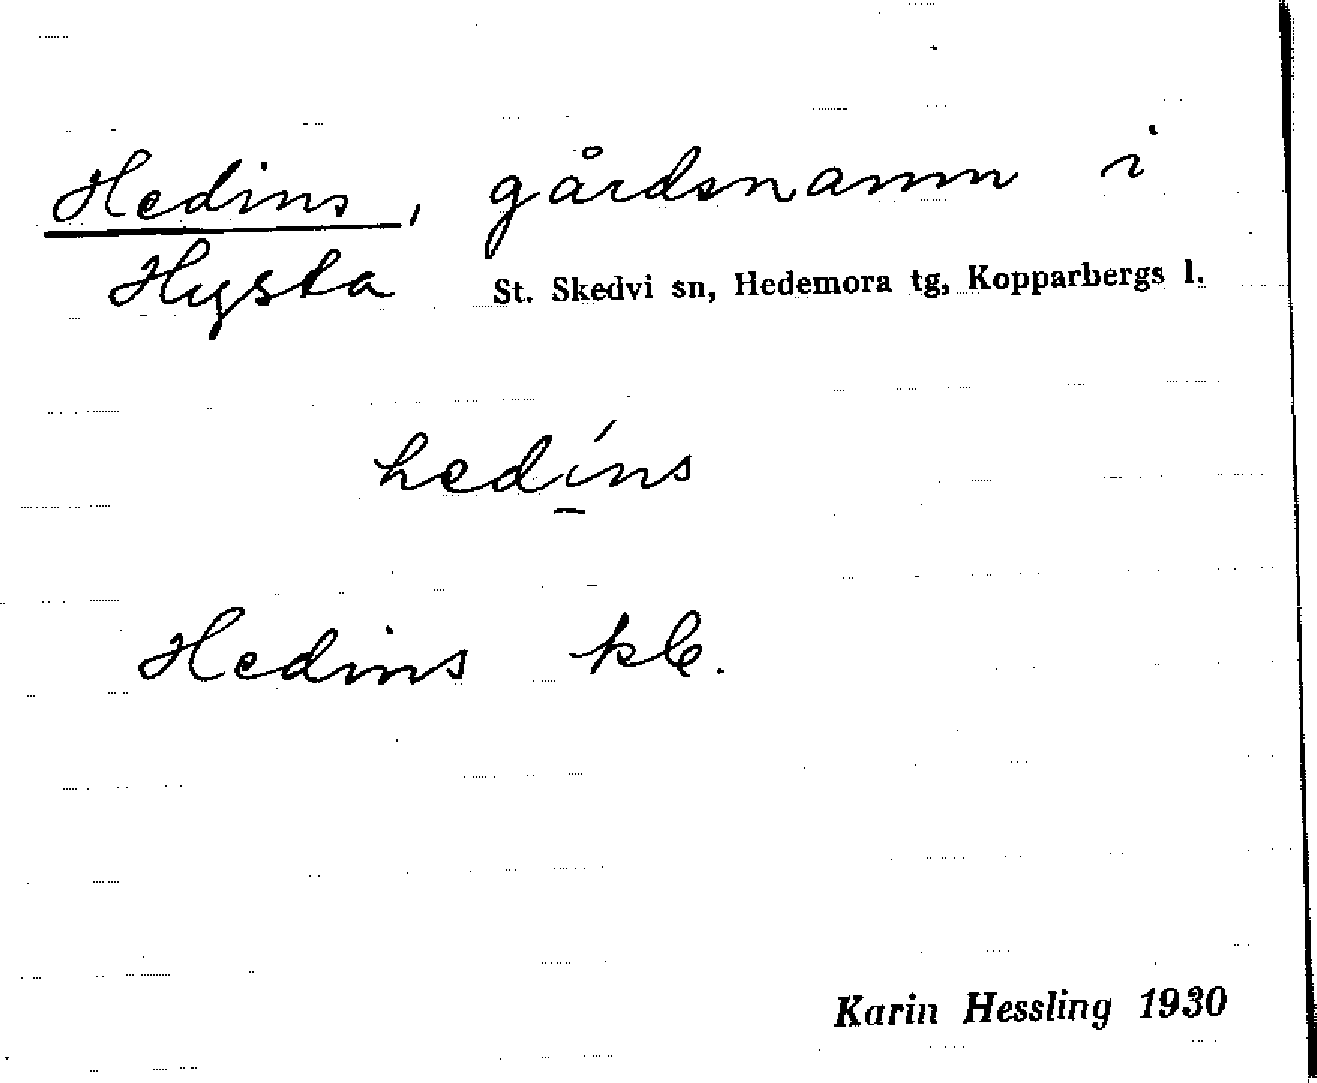 Hedins, gårdsnamn i
Hysta St. Skedvi sn, Hedemora tg, Kopparbergs l.
hedí̱ns
Hedins kb.
Karin Hessling 1930